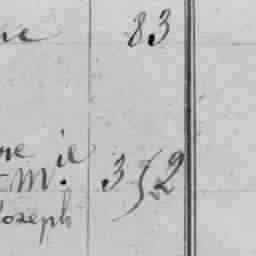 ne 83
ne ie
m. 352
Joseph